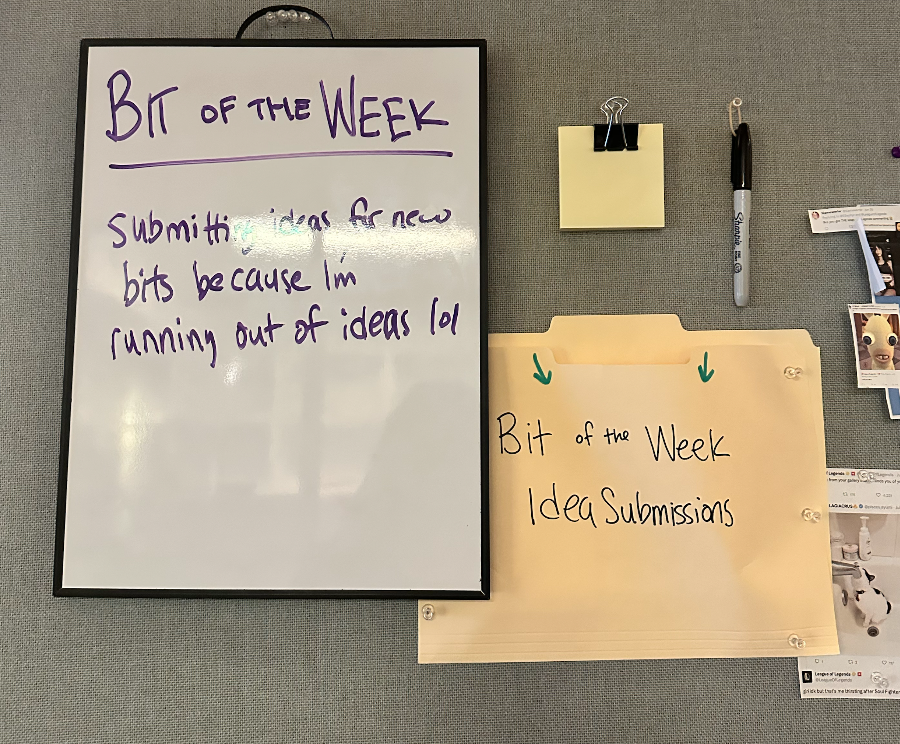 BIT OF THE WEEK
Submitting ideas for new
bits because I'm
running out of ideas lol
Sharpie
Bit of the Week
Idea Submissions
League of Legends
@LeagueOfLegends